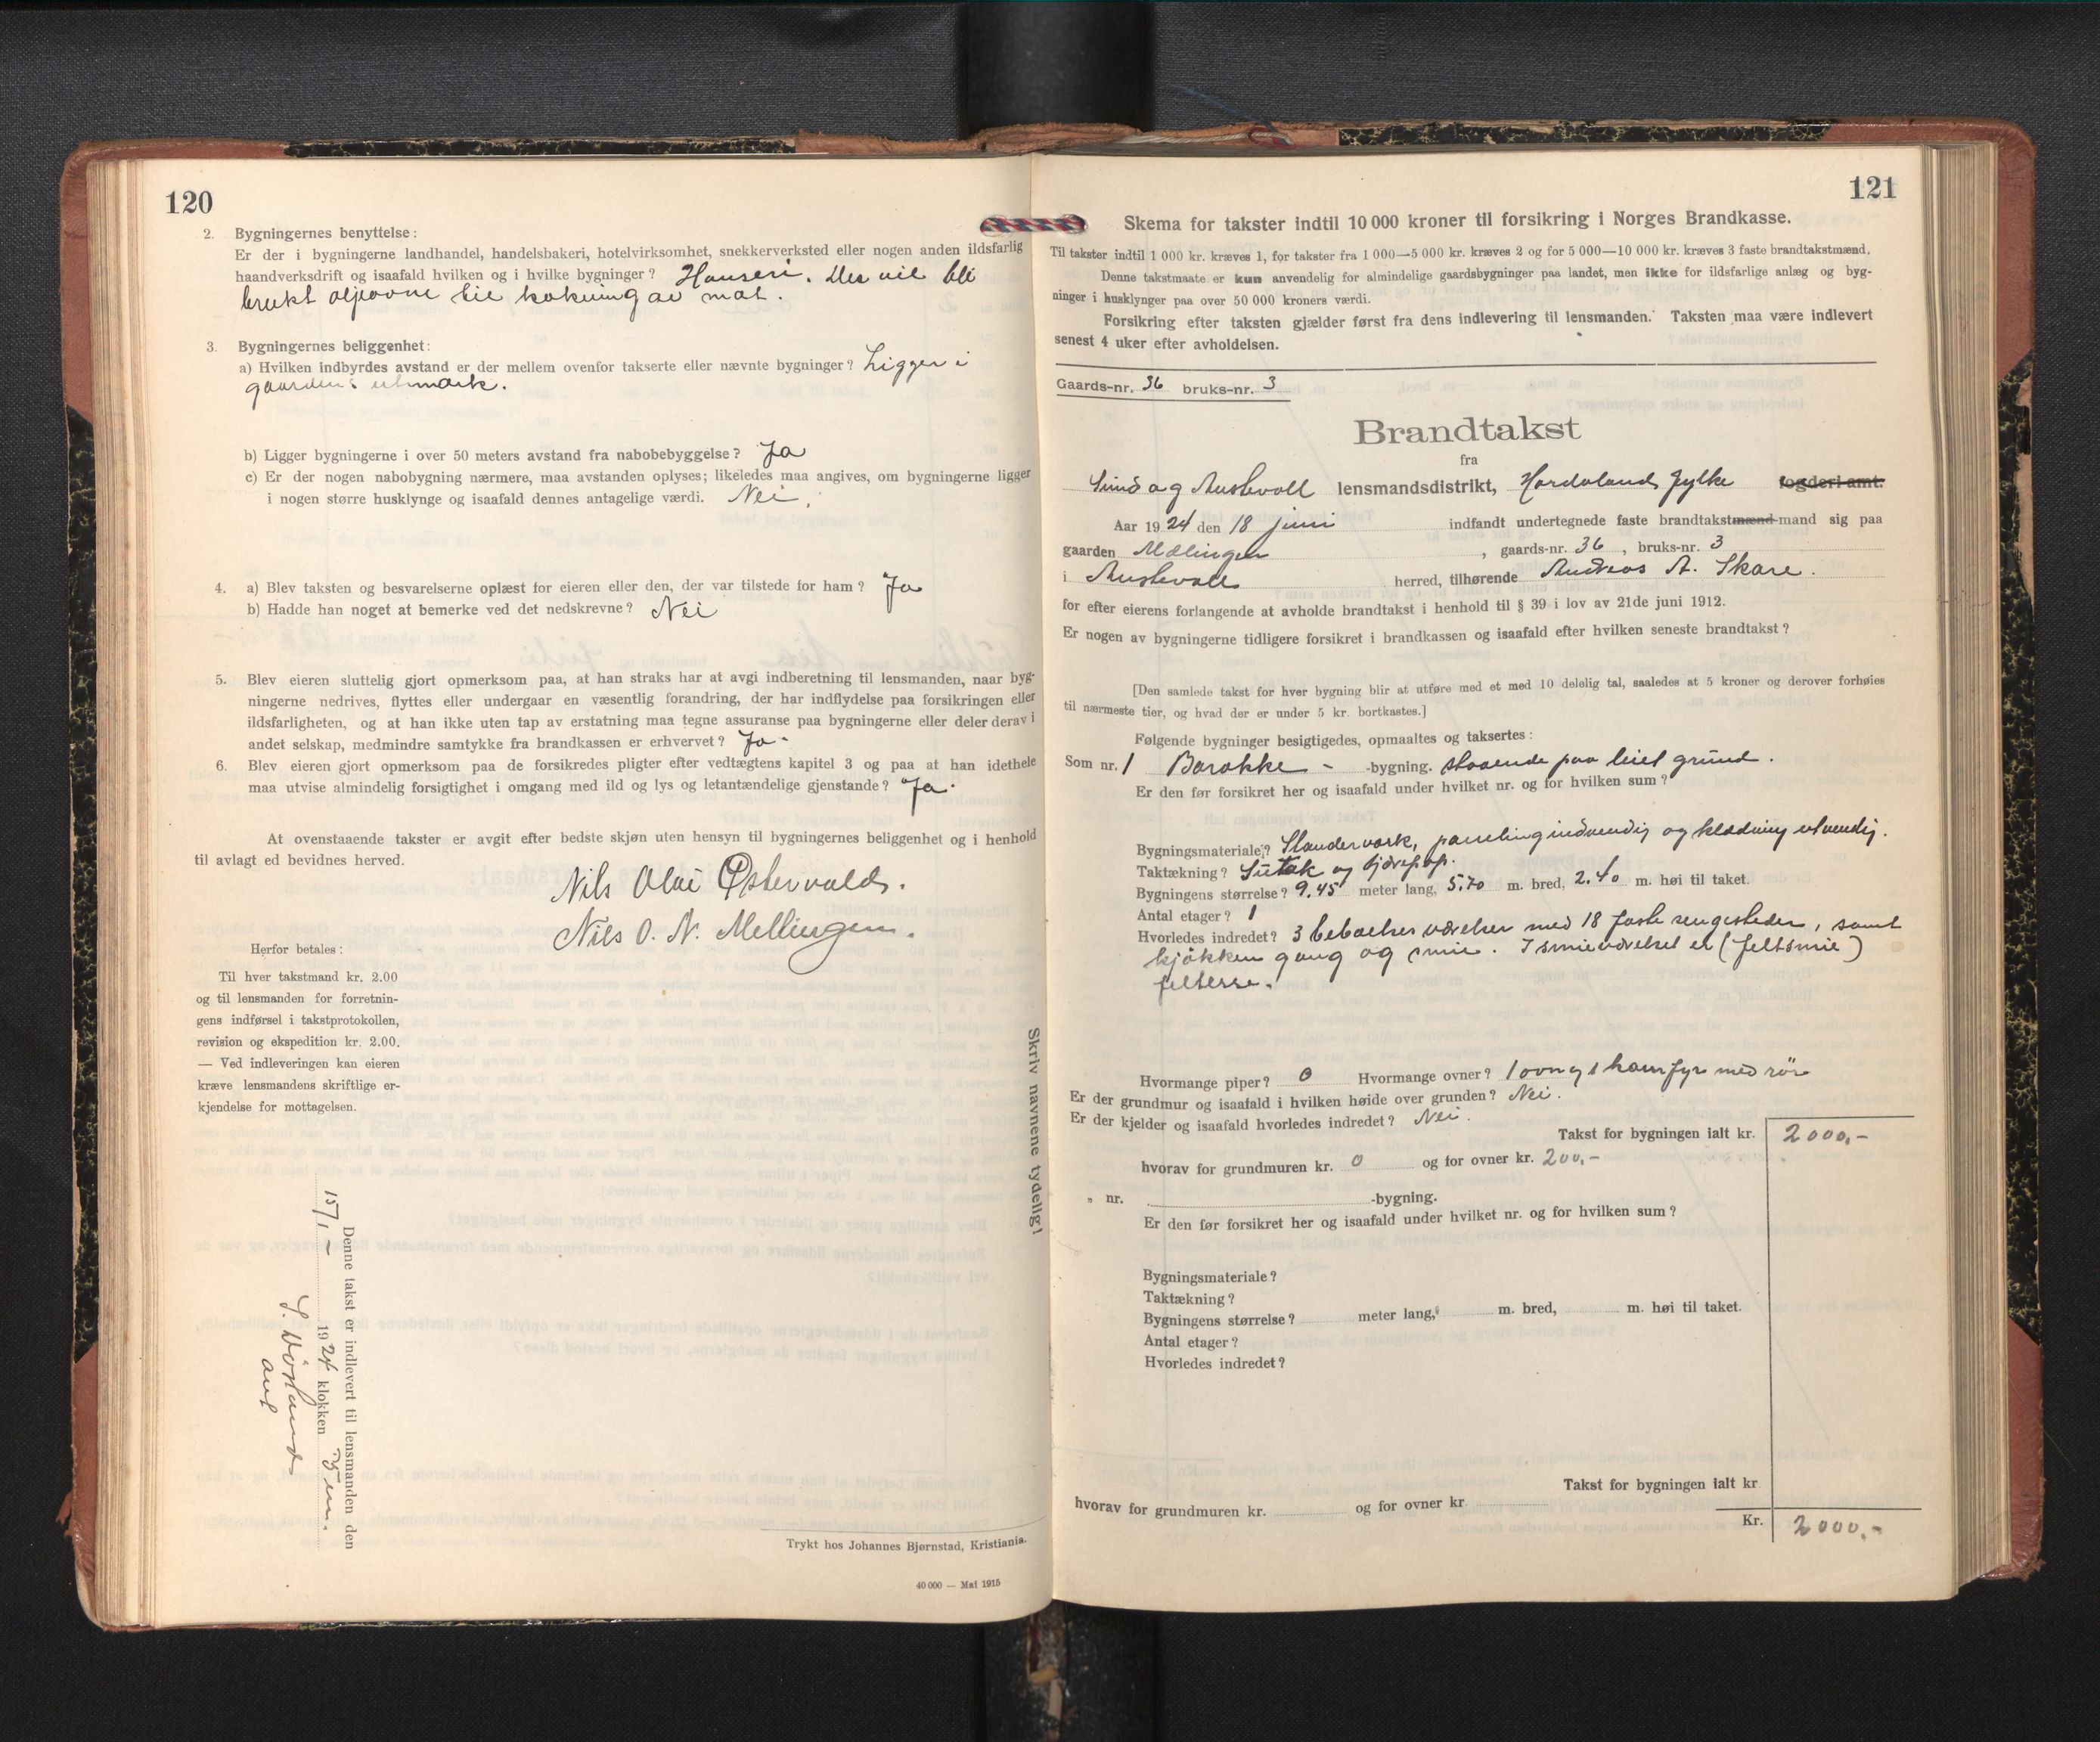 120
2. Bygningernes benyttelse:
Er der i bygningerne landhandel, handelsbakeri, hotelvirksomhet, snekkerverksted eller nogen anden ildsfarlig
haandverksdrift og isaafald hvilken og i hvilke bygninger? Der vil bli
brukt oljeovne til kokning av mat.
3. Bygningernes beliggenhet:
a) Hvilken indbyrdes avstand er der mellem ovenfor takserte eller nævnte bygninger? Ligger i
gaardens utmark.
b) Ligger bygningerne i over 50 meters avstand fra nabobebyggelse? Ja
c) Er der nogen nabobygning nærmere, maa avstanden oplyses; likeledes maa angives, om bygningerne ligger
i nogen større husklynge og isaafald dennes antagelige værdi. Nei.
4. a) Blev taksten og besvarelserne oplæst for eieren eller den, der var tilstede for ham? Ja
b) Hadde han noget at bemerke ved det nedskrevne? Nei
5. Blev eieren sluttelig gjort opmerksom paa, at han straks har at avgi indberetning til lensmanden, naar byg-
ningerne nedrives, flyttes eller undergaar en væsentlig forandring, der har indflydelse paa forsikringen eller
ildsfarligheten, og at han ikke uten tap av erstatning maa tegne assuranse paa bygningerne eller deler derav i
andet selskap, medmindre samtykke fra brandkassen er erhvervet? Ja.
6. Blev eieren gjort opmerksom paa de forsikredes pligter efter vedtægtens kapitel 3 og paa at han idethele
maa utvise almindelig forsigtighet i omgang med ild og lys og letantændelige gjenstande? Ja.
At ovenstaaende takster er avgit efter bedste skjøn uten hensyn til bygningernes beliggenhet og i henhold
til avlagt ed bevidnes herved.
Nils Olai Østervold.
Nils O. N. Mellingen.
Herfor betales:
Til hver takstmand kr. 2.00
og til lensmanden for forretnin-
gens indførsel i takstprotokollen,
revision og ekspedition kr. 2.00.
— Ved indleveringen kan eieren
kræve lensmandens skriftlige er-
kjendelse for mottagelsen.
Skriv navnene tydelig!
Denne takst er indlevert til lensmanden den
1924 klokken
Trykt hos Johannes Bjørnstad, Kristiania.
40 000 — Mai 1915
121
Skema for takster indtil 10 000 kroner til forsikring i Norges Brandkasse.
Til takster indtil 1 000 kr. kræves 1, for takster fra 1 000—5 000 kr. kræves 2 og for 5 000—10 000 kr. kræves 3 faste brandtakstmænd.
Denne takstmaate er kun anvendelig for almindelige gaardsbygninger paa landet, men ikke for ildsfarlige anlæg og byg-
ninger i husklynger paa over 50 000 kroners værdi.
Forsikring efter taksten gjælder først fra dens indlevering til lensmanden. Taksten maa være indlevert
senest 4 uker efter avholdelsen.
Gaards-nr. 36 bruks-nr. 3
Brandtakst
fra
Sund og Austevoll lensmandsdistrikt, Hordaland fylke fogderi amt.
Aar 1924 den 18 juni indfandt undertegnede faste brandtakstmænd-mand sig paa
gaarden Mælingen, gaards-nr. 36, bruks-nr. 3
i Austevoll herred, tilhørende Andreas A. Skare.
for efter eierens forlangende at avholde brandtakst i henhold til § 39 i lov av 21de juni 1912.
Er nogen av bygningerne tidligere forsikret i brandkassen og isaafald efter hvilken seneste brandtakst?
[Den samlede takst for hver bygning blir at utføre med et med 10 delelig tal, saaledes at 5 kroner og derover forhøies
til nærmeste tier, og hvad der er under 5 kr. bortkastes.]
Følgende bygninger besigtigedes, opmaaltes og taksertes:
Som nr. 1 Barakke - -bygning. staaende paa leiet grund.
Er den før forsikret her og isaafald under hvilket nr. og for hvilken sum?
Bygningsmateriale? Standerverk, paneling indvendig og klædning utvendig.
Taktækning? Sutak og tjærepap.
Bygningens størrelse? 9.45 meter lang, 5.70 m. bred, 2.40 m. høi til taket.
Antal etager? 1
Hvorledes indredet? 3 beboelses værelser med 18 faste sengesteder, samt
kjøkken gang og smie. I smieværelset er (feltsmie)
feltesse.
Hvormange piper? 0 Hvormange ovner? 1 ovn og 1 komfyr med rør
Er der grundmur og isaafald i hvilken høide over grunden? Nei.
Er der kjelder og isaafald hvorledes indredet? Nei.
Takst for bygningen ialt kr. 2000,-
hvorav for grundmuren kr. 0 og for ovner kr. 200,-
" nr. -bygning.
Er den før forsikret her og isaafald under hvilket nr. og for hvilken sum?
Bygningsmateriale?
Taktækning?
Bygningens størrelse? meter lang, m. bred, m. høi til taket.
Antal etager?
Hvorledes indredet?
Takst for bygningen ialt kr
hvorav for grundmuren kr. og for ovner kr
Kr. 2000,-